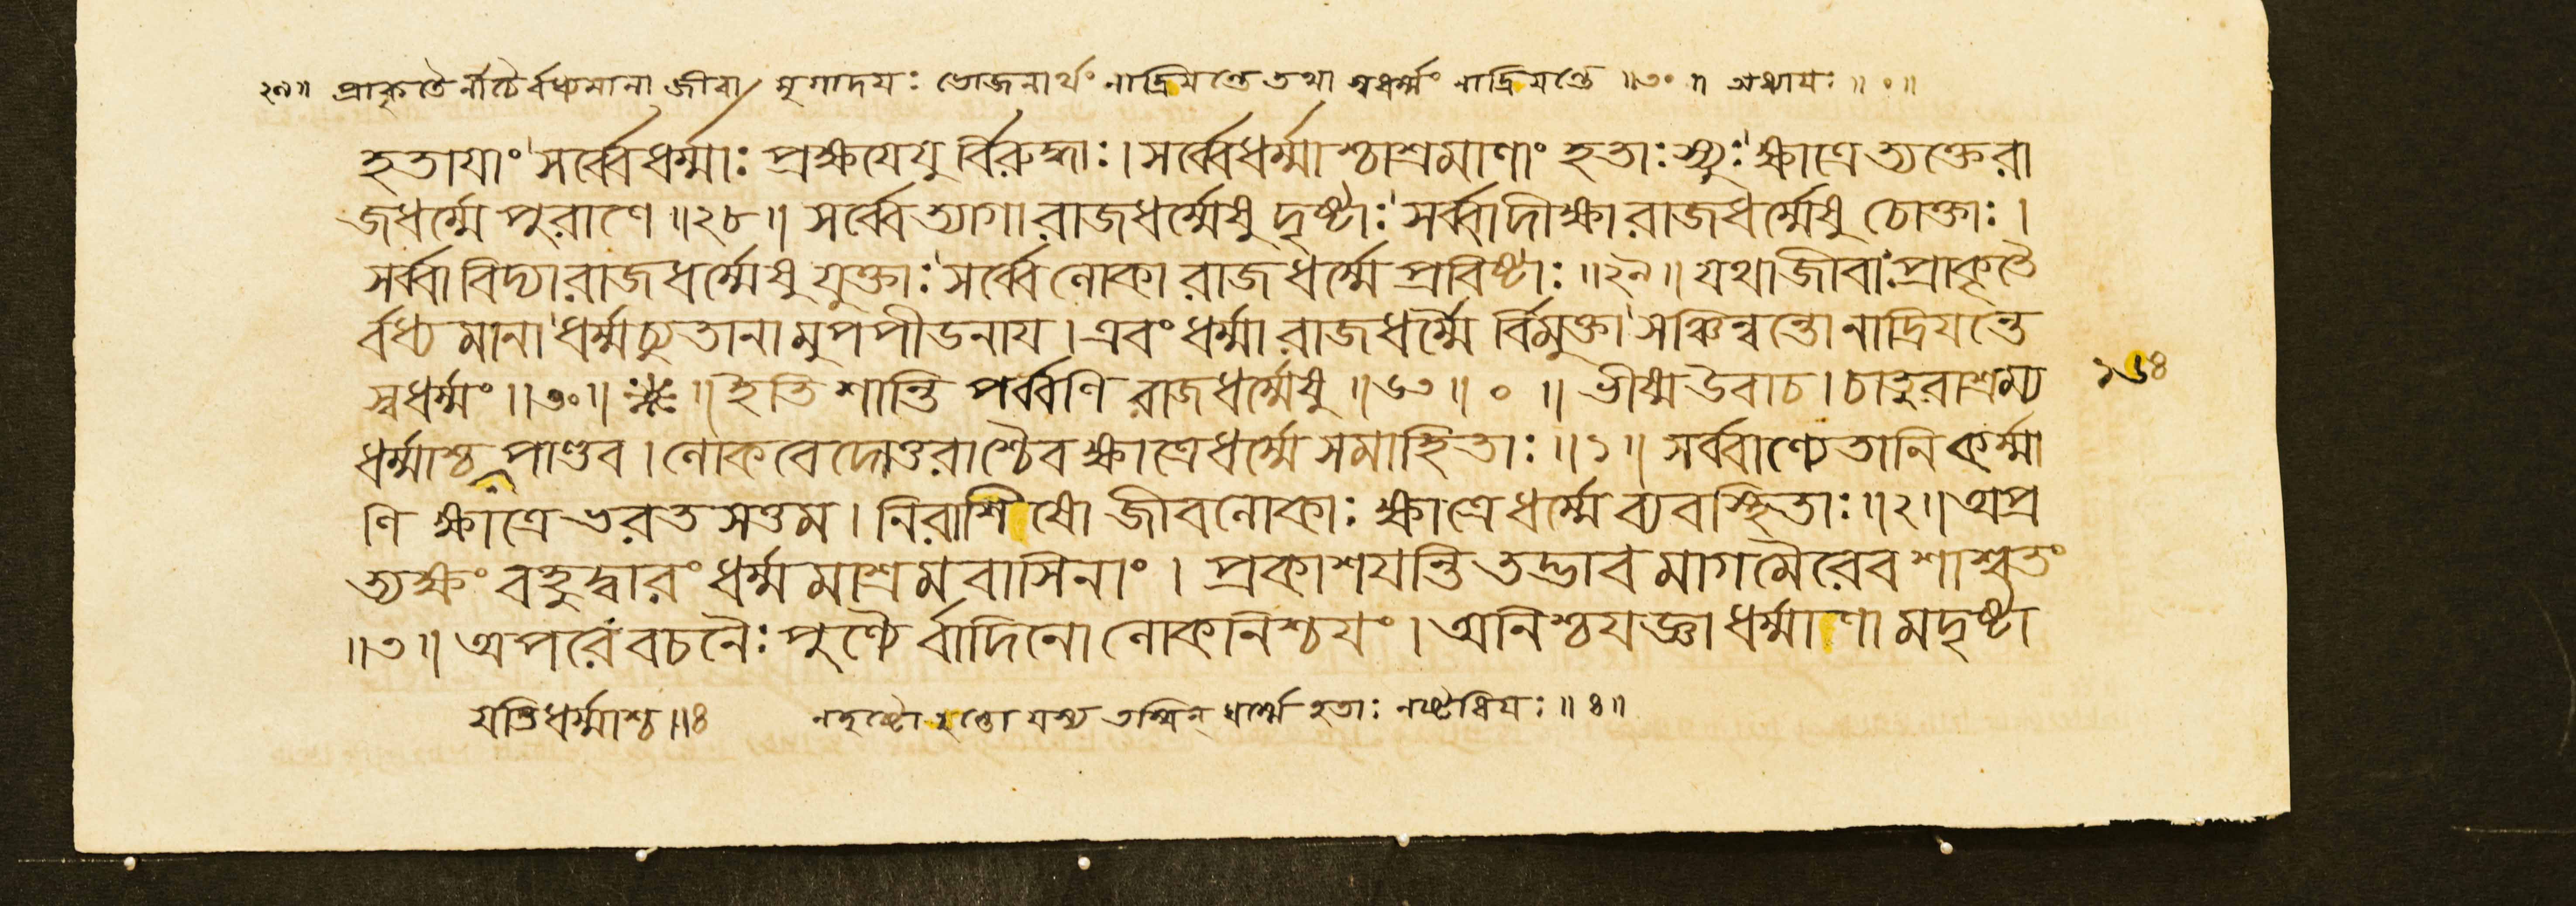 ২৯॥ প্রাকৃতৈর্নীচৈর্বধ্যমানা জীবা মৃগাদয়ঃ ভোজনার্থং নাদ্রিয়ন্তে তথা স্বধর্ম্মং নাদ্রিয়ন্তে ॥৩০॥ অধ্যায়ঃ ॥ ० ॥
হতাযাং সর্ব্বে ধর্ম্মাঃ প্রক্ষযেযু র্বিরুদ্ধাঃ। সর্ব্বে ধর্ম্মাশ্চাশ্রমাণাং হতাঃ স্যুঃ ক্ষাত্রে ত্যক্তে রা
জধর্ম্মে পুরাণে ॥২৮॥ সর্ব্বে ত্যাগা রাজধর্ম্মেষু দৃষ্টাঃ সর্ব্বাদীক্ষা রাজধর্ম্মেষু চোক্তাঃ।
সর্ব্বা বিদ্যা রাজধর্ম্মেষু যুক্তাঃ সর্ব্বে লোকা রাজধর্ম্মে প্রবিষ্টাঃ ॥২৯॥ যথা জীবাঃ প্রাকৃতৈ
র্বধ্যমানা ধর্ম্মচ্যুতানামুপপীডনায। এবং ধর্ম্মা রাজধর্ম্মৈ র্বিমুক্তা সঞ্চিন্বন্তো নাদ্রিযন্তে
স্বধর্ম্মং ॥৩০॥ ॥ ইতি শান্তি পর্ব্বণি রাজধর্ম্মেষু ॥৬৩॥ ० ॥ ভীষ্ম উবাচ। চাতুরাশ্রম্য
১৬৪
ধর্ম্মাশ্চ পাণ্ডব। লোকবেদোত্তরাশ্চৈব ক্ষাত্রে ধর্ম্মে সমাহিতাঃ ॥১॥ সর্ব্বাণ্যেতানি কর্ম্মা
ণি ক্ষাত্রে ভরতসত্তম। নিরাশিষো জীবলোকাঃ ক্ষাত্রে ধর্ম্মে ব্যবস্থিতাঃ ॥২॥ অপ্র
ত্যক্ষং বহুদ্বারং ধর্ম্মমাশ্রমবাসিনাং। প্রকাশযন্তি তদ্ভাবমাগমৈরেব শাশ্বতং
॥৩॥ অপরে বচনৈঃ পুণ্যৈ র্বাদিনো লোকনিশ্চযং। অনিশ্চযজ্ঞা ধর্ম্মাণামদৃষ্টা
যতিধর্ম্মাশ্চ ॥৪ নদৃষ্টো যস্য তস্মিন্ ধর্ম্মে হতাঃ নষ্টধিয়ঃ ॥৪॥